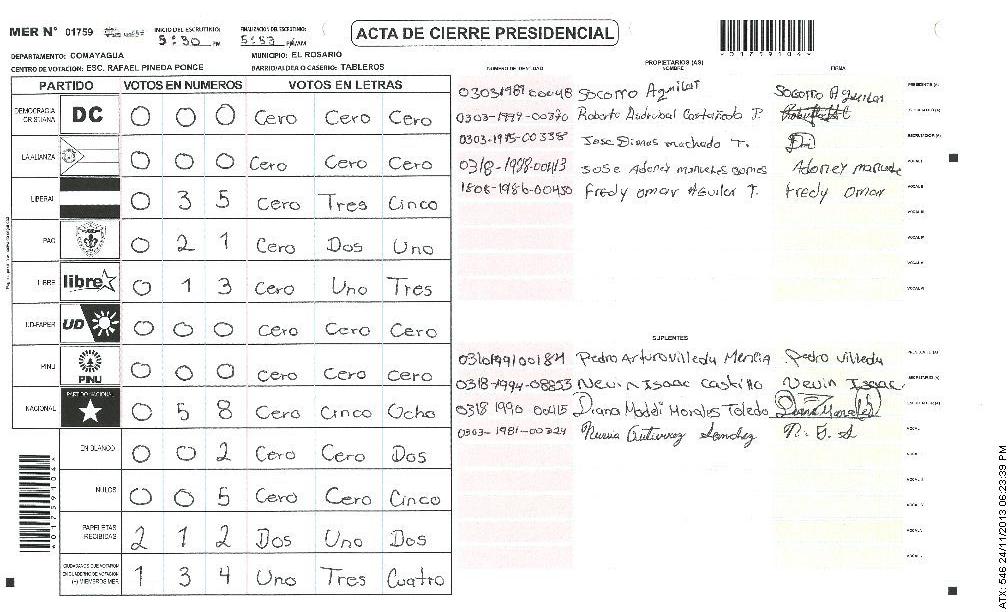 MER N° 01759 INICIO DEL ESCRUTINIO: 5:30 PM FINALIZACION DEL ESCRUTINIO: 5:53 PM/AM
ACTA DE CIERRE PRESIDENCIAL
DEPARTAMENTO: COMAYAGUA MUNICIPIO: EL ROSARIO
CENTRO DE VOTACION: ESC. RAFAEL PINEDA PONCE BARRIO/ALDEA O CASERIO: TABLEROS
PARTIDO VOTOS EN NUMEROS VOTOS EN LETRAS
DEMOCRACIA CRISTIANA DC 0 0 0 Cero Cero Cero
LA ALIANZA 0 0 0 Cero Cero Cero
LIBERAL 0 3 5 Cero Tres Cinco
PAC 0 2 1 Cero Dos Uno
LIBRE libre 0 1 3 Cero Uno Tres
UD-FAPER UD 0 0 0 Cero Cero Cero
PINU PINU 0 0 0 Cero Cero Cero
NACIONAL PARTIDO NACIONAL 0 5 8 Cero Cinco Ocho
EN BLANCO 0 0 2 Cero Cero Dos
NULOS 0 0 5 Cero Cero Cinco
PAPELETAS RECIBIDAS 2 1 2 Dos Uno Dos
CIUDADANOS QUE VOTARON EN CUADERNO DE VOTACION (+) MIEMBROS MER 1 3 4 Uno Tres Cuatro
PROPIETARIOS (AS)
NUMERO DE IDENTIDAD NOMBRE FIRMA
0303198700048 Socorro Aguilar Socorro Aguilar PRESIDENTE (A)
0303-1977-00370 Roberto Asdrubal Castañeda P.
0303-1975-00338 Jose Dimas machado T. SECRETARIO (A)
0318-1988-00413 Jose Adoney manueles gomes Adoney manuele VOCAL I
1808-1986-00450 Fredy omar Aguilar T. Fredy Omar VOCAL II
VOCAL III
VOCAL IV
VOCAL V
VOCAL VI
SUPLENTES
Pedro Arturo Villeda Pedro Villeda
0318-1994-08853 Nevin Isaac Castillo Nevin Isaac
0318 1990 00415 Diana Morales Toledo Diana Morales
0303-1981-00324 Nuvia Gutierrez Sanchez N. G. S
ATX: 546 24/11/2013 06:23:39 PM